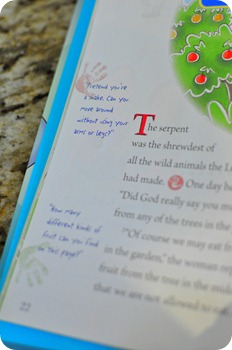 "Pretend you're
a snake. Can you
move around
without using your
arms or legs?"
The serpent
was the shrewdest of
all the wild animals the L
had made. One day h
"Did God really say you m
from any of the trees in the
"Of course we may eat fr
in the garden," the woman rep
fruit from the tree in the midd
that we are not allowed to eat.
"How many
different kinds of
fruit can you find
on this page?"
22